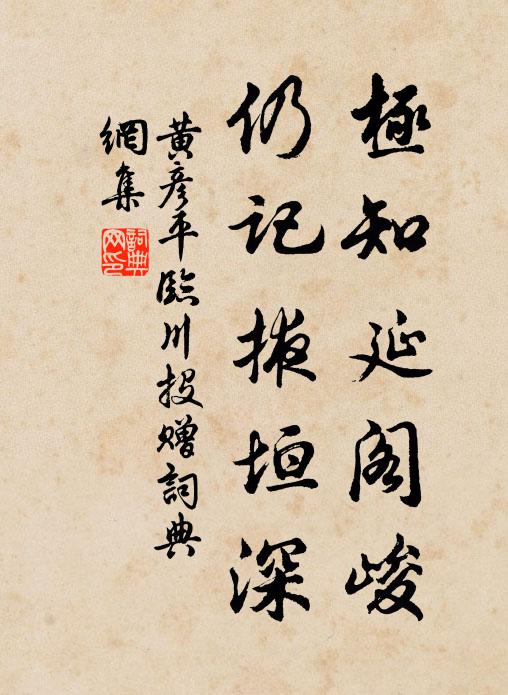 極知延閣峻
仍記掖垣深
黃彥平臨川投贈詞典
網集
詞典
网印